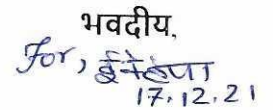 भवदीय,
For,
17.12.21